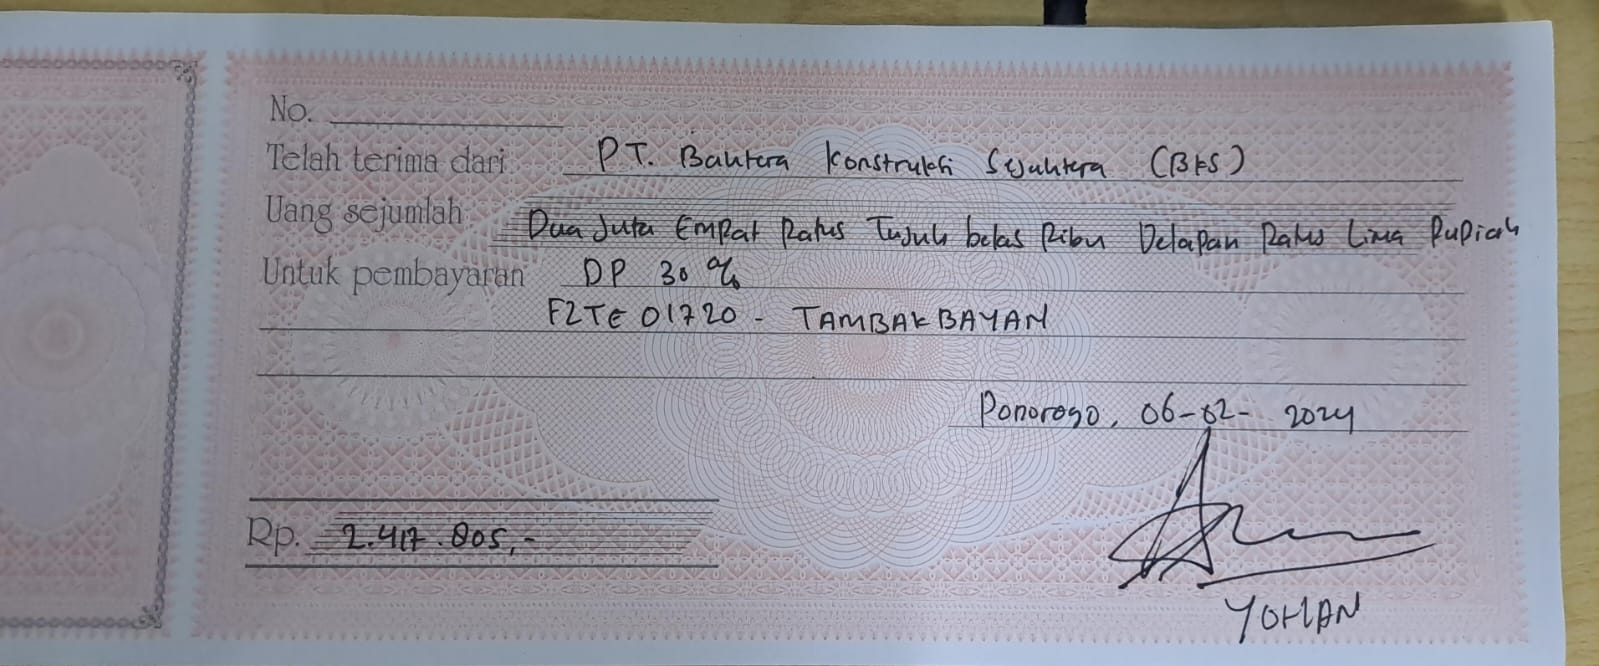 No.
Telah terima dari PT. Bahtera Konstruksi Sejahtera (BKS)
Uang sejumlah Dua Juta Empat Ratus Tujuh belas Ribu Delapan Ratus Lima Rupiah
Untuk pembayaran DP 30%
FZTE 01720 - TAMBAKBAYAN
Ponorogo, 06-02-2024
Rp. 2.417.805,-
YOHAN